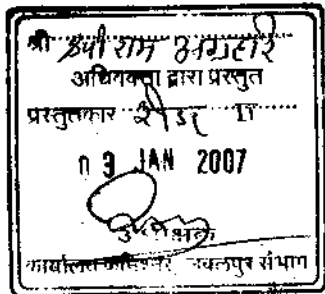 श्री श्री राम अग्रहरि
अधिवक्ता द्वारा प्रस्तुत
प्रस्तुतकार रीडर II
03 JAN 2007
अधीक्षक
कार्यालय कमिश्नर, जबलपुर संभाग